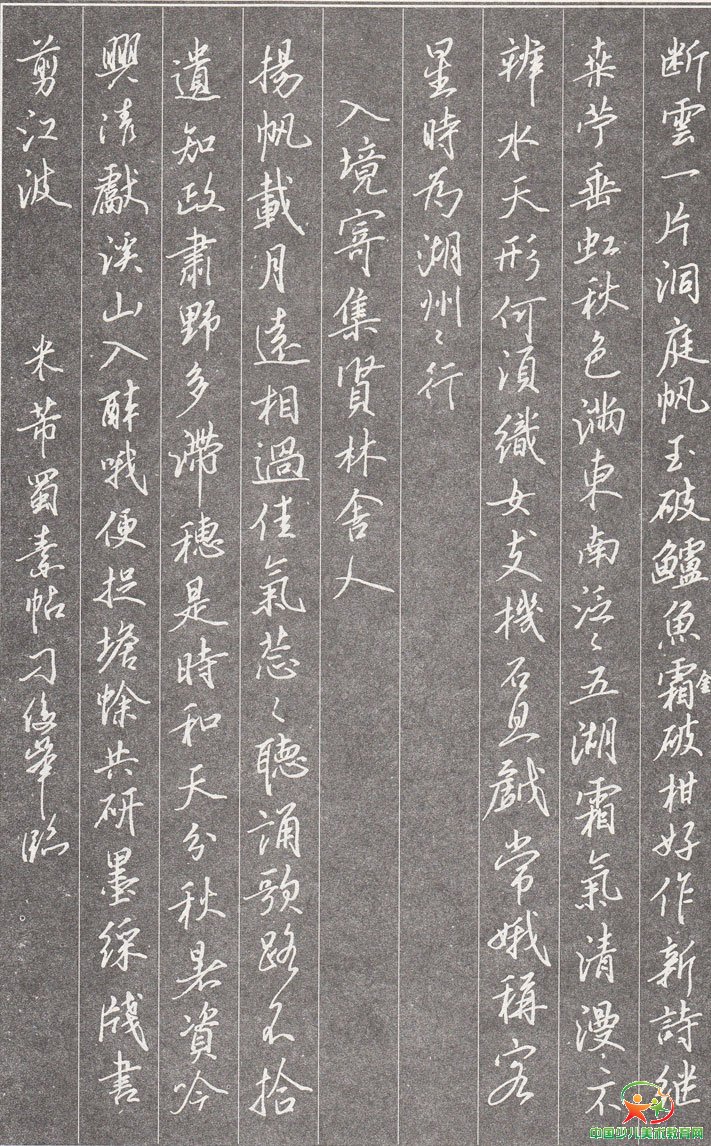 断雲一片洞庭帆玉破鱸魚霜破柑好作新詩継
金
桒苧垂虹秋色満東南泛〻五湖霜氣清漫〻不
辨水天形何須織女支機石且戲常娥稱客
星時為湖州〻行
入境寄集賢林舍人
揚帆載月遠相過佳氣蔥〻聽誦歌路不拾
遺知政肅野多滯穗是時和天分秋暑資吟
興清獻溪山入醉哦便捉蟾蜍共研墨綵牋書
剪江波
米芾蜀素帖刁俊峯臨
中国少儿美术教育网